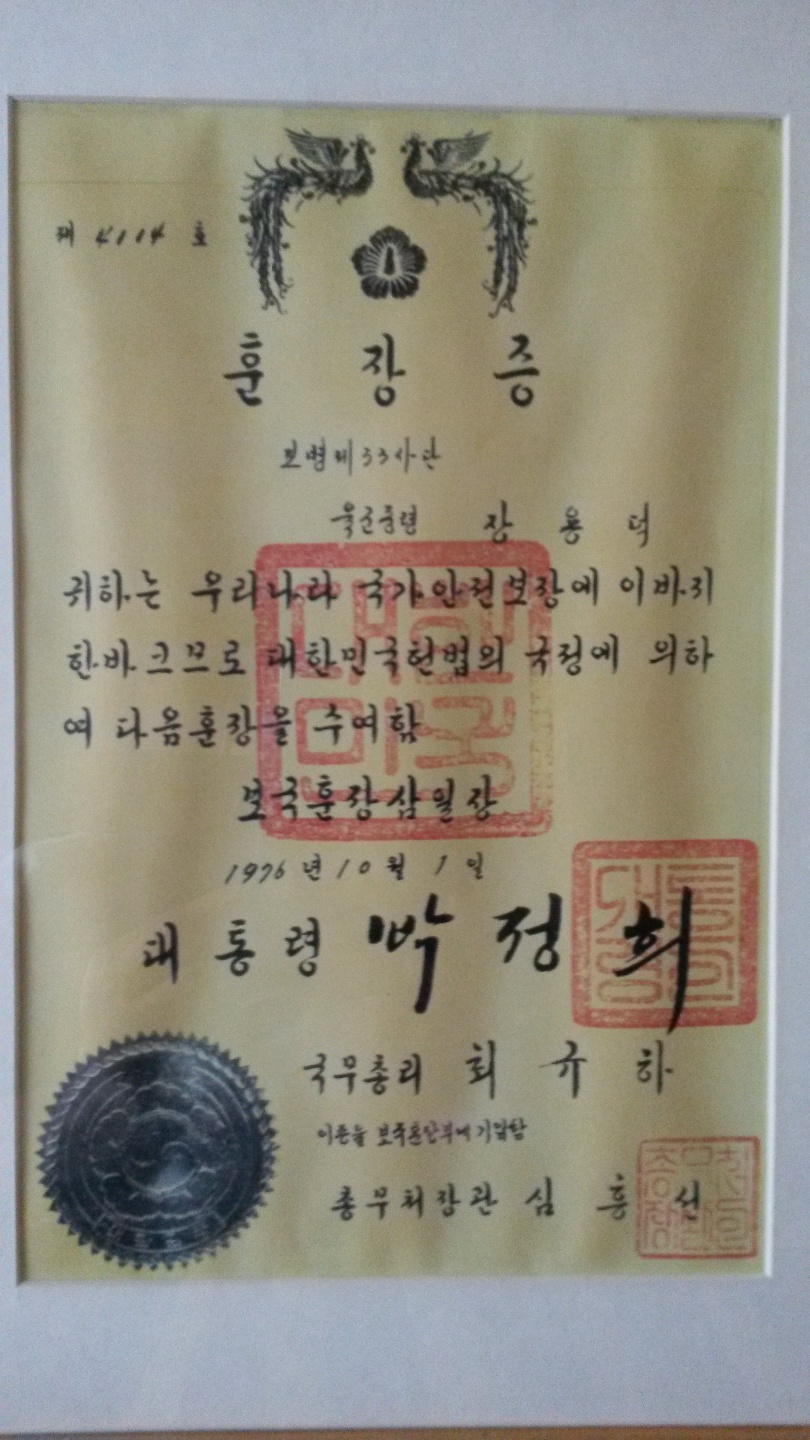 제 4114 호
훈 장 증
보병제33사단
육군중령 장 용 덕
귀하는 우리나라 국가안전보장에 이바지
한바 크므로 대한민국헌법의 규정에 의하
여 다음훈장을 수여함
대한
민국
보국훈장삼일장
1976년 10월 1일
대통령 박정희
대통
령인
국무총리 최 규 하
이 증을 보국훈장부에 기입함
총무처장관 심 흥 선